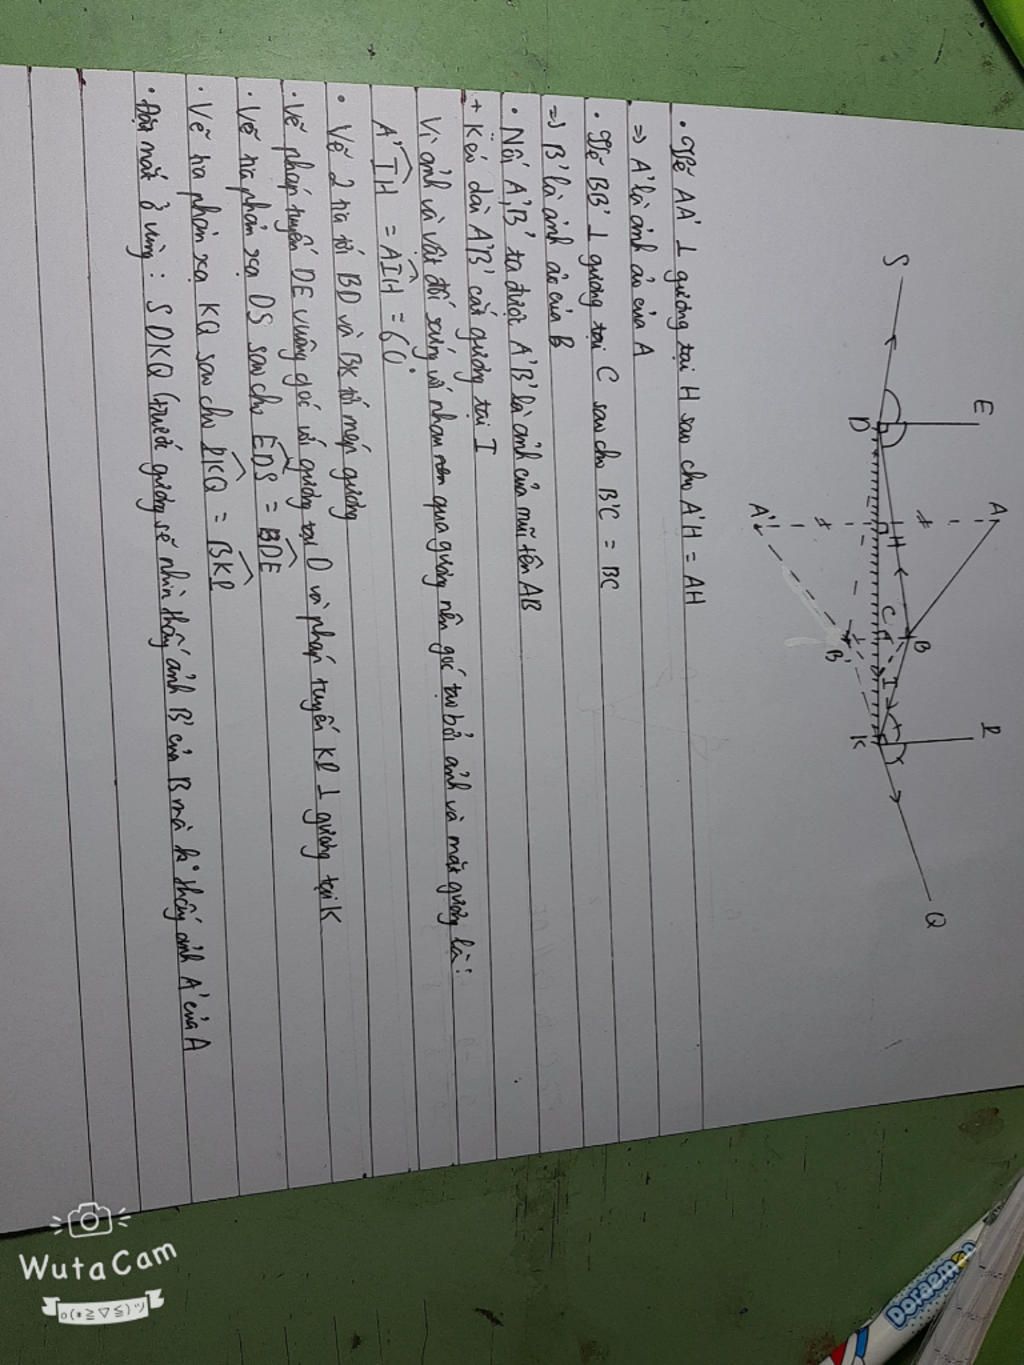 E
A
P
S
D
H
C
B
I
K
Q
A'
B'
• Vẽ AA' ⊥ gương tại H sao cho A'H = AH
=> A' là ảnh ảo của A
• Vẽ BB' ⊥ gương tại C sao cho B'C = BC
=> B' là ảnh ảo của B
• Nối A', B' ta được A'B' là ảnh của mũi tên AB
+ Kéo dài A'B' cắt gương tại I
Vì ảnh và vật đối xứng với nhau qua gương nên góc tạo bởi ảnh và mặt gương là:
A'IH = AIH = 60°
• Vẽ 2 tia tới BD và BK tới mép gương
• Vẽ pháp tuyến DE vuông góc với gương tại D và pháp tuyến KP ⊥ gương tại K
• Vẽ tia phản xạ DS sao cho EDS = BDE
• Vẽ tia phản xạ KQ sao cho PKQ = BKP
• Đặt mắt ở vùng: SDKQ trước gương sẽ nhìn thấy ảnh B' của B mà k° thấy ảnh A' của A
WutaCam
Doraemon